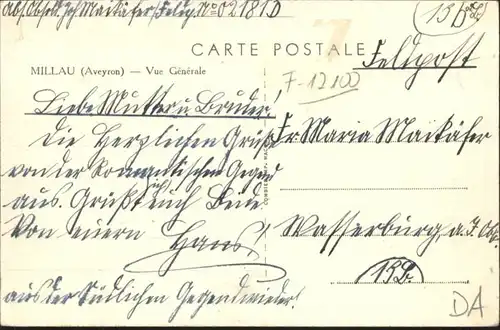 Abs. Obsold. Joh Maikäfer / Feldp. No 02181D
13 B
CARTE POSTALE
Feldpost
MILLAU (Aveyron) — Vue Générale
F-12100
Liebe Mutter u. Bruder!
Die Herzlichen Grüß
von der Romantischen Gegend
aus. Grüßt Euch Beide
Von euern Hans!
aus der Südlichen Gegend wieder!
Fr Maria Maikäfer
Wasserburg, a. J. Ob.
13b.
DA